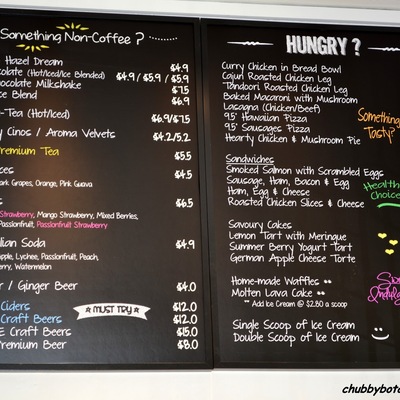 Something Non-Coffee ?
Hazel Dream $4.9
colate (Hot/Iced/Ice Blended) $4.9 / $5.9 / $5.9
hocolate Milkshake $7.5
ce Blend $6.9
-Tea (Hot/Iced) $6.9/$7.5
y Cinos / Aroma Velvets $4.2/5.2
Premium Tea $5.5
ces $4.5
ark Grapes, Orange, Pink Guava
s $6.5
Strawberry, Mango Strawberry, Mixed Berries,
Passionfruit, Passionfruit Strawberry
lian Soda $4.9
apple, Lychee, Passionfruit, Peach,
berry, Watermelon
r / Ginger Beer $4.0
Ciders $12.0
Craft Beers $12.0
E Craft Beers $15.0
Premium Beer $8.0
MUST TRY
HUNGRY ?
Curry Chicken in Bread Bowl
Cajun Roasted Chicken Leg
Tandoori Roasted Chicken Leg
Baked Macaroni with Mushroom
Lasagna (Chicken/Beef)
9.5' Hawaiian Pizza
9.5' Sausages Pizza
Hearty Chicken & Mushroom Pie
Something
Tasty?
Sandwiches
Smoked Salmon with Scrambled Eggs
Sausage, Ham, Bacon & Egg
Ham, Egg & Cheese
Roasted Chicken Slices & Cheese
Health
Choice
Savoury Cakes
Lemon Tart with Meringue
Summer Berry Yogurt Tart
German Apple Cheese Torte
Home-made Waffles **
Molten Lava Cake **
** Add Ice Cream @ $2.80 a scoop
Single Scoop of Ice Cream
Double Scoop of Ice Cream
chubbybota